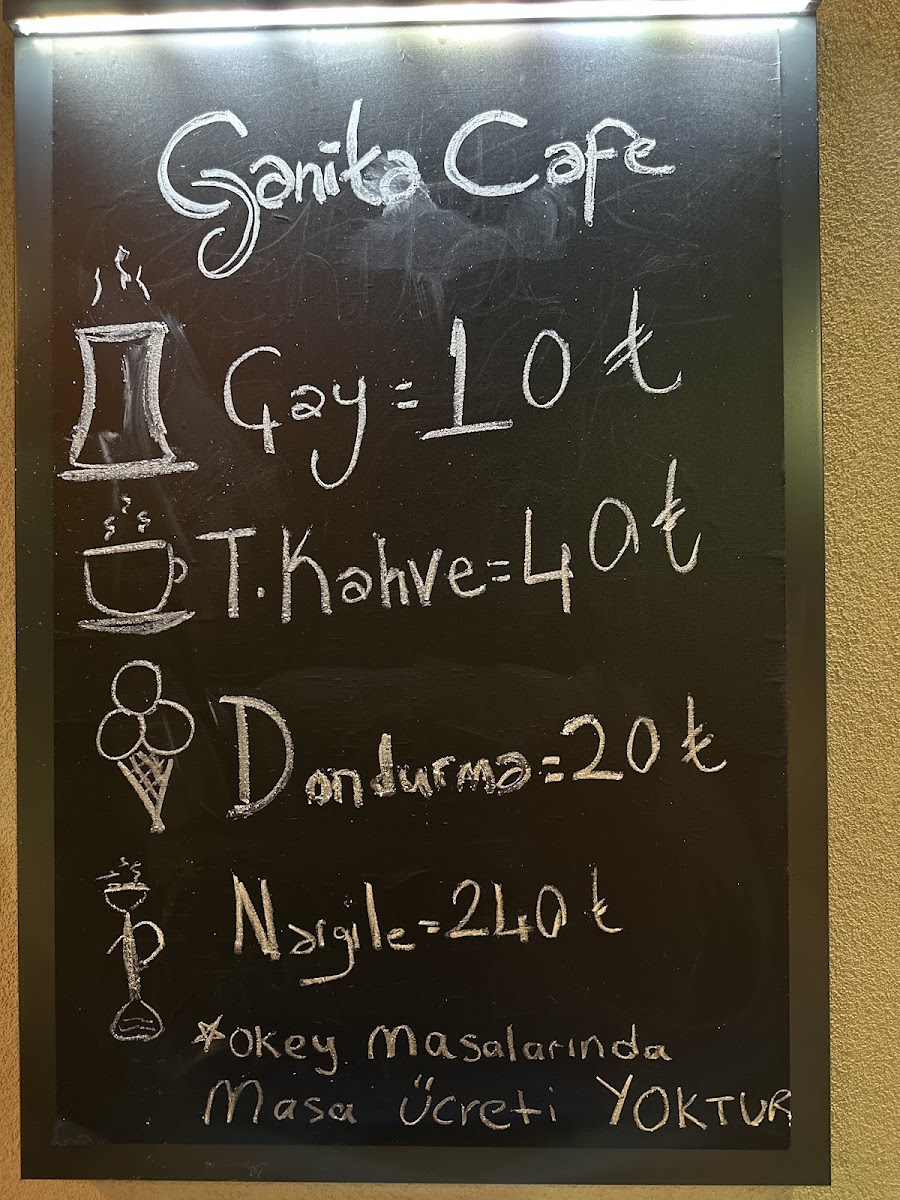 Ganita Cafe
Çay = 10 ₺
T. Kahve = 40 ₺
Dondurma = 20 ₺
Nargile = 240 ₺
*okey masalarında
Masa ücreti YOKTUR